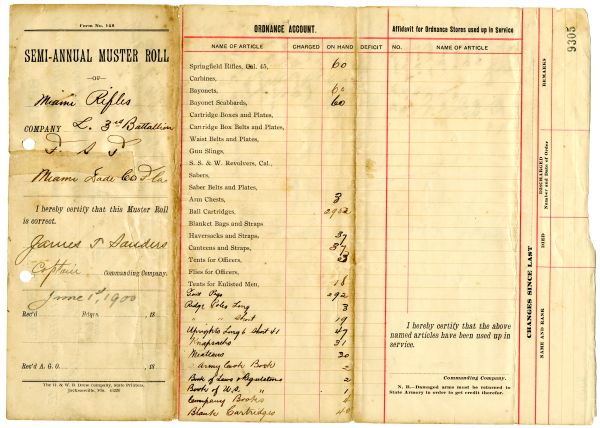 Form No. 148
SEMI-ANNUAL MUSTER ROLL
—OF—
Miami Rifles
COMPANY L. 3rd Battallion
F S T
Miami Dade Co Fla
I hereby certify that this Muster Roll
is correct.
James T Sanders
Captain Commanding Company.
June 1st, 1900
Rec'd Hdqrs 18
Rec'd A. G. O. 18
The H. & W. B. Drew Company, State Printers,
Jacksonville, Fla.
ORDNANCE ACCOUNT.
NAME OF ARTICLE CHARGED ON HAND DEFICIT
Springfield Rifles, Cal. 45, 60
Carbines,
Bayonets, 60
Bayonet Scabbards, 60
Cartridge Boxes and Plates,
Cartridge Box Belts and Plates,
Waist Belts and Plates,
Gun Slings,
S. S. & W. Revolvers, Cal.,
Sabers,
Saber Belts and Plates,
Arm Chests, 3
Ball Cartridges,
Blanket Bags and Straps
Haversacks and Straps, 37
Canteens and Straps, 37
Tents for Officers, 3
Flies for Officers,
Tents for Enlisted Men, 18
Tent Pegs 292
Ridge Poles Long 3
" " Short 19
Uprights Long 6 Short 41 47
Knapsacks 31
30
Army Cook Book 2
Book of Laws & Regulations 2
Book of U.S. " 1
Company Books 4
Blank Cartridges 40
Affidavit for Ordnance Stores used up in Service
NO. NAME OF ARTICLE
I hereby certify that the above
named articles have been used up in
service.
Commanding Company.
N. B.—Damaged arms must be returned to
State Armory in order to get credit therefor.
CHANGES SINCE LAST
NAME AND RANK
DIED
DISCHARGED
Number and Date of Order
REMARKS
9305